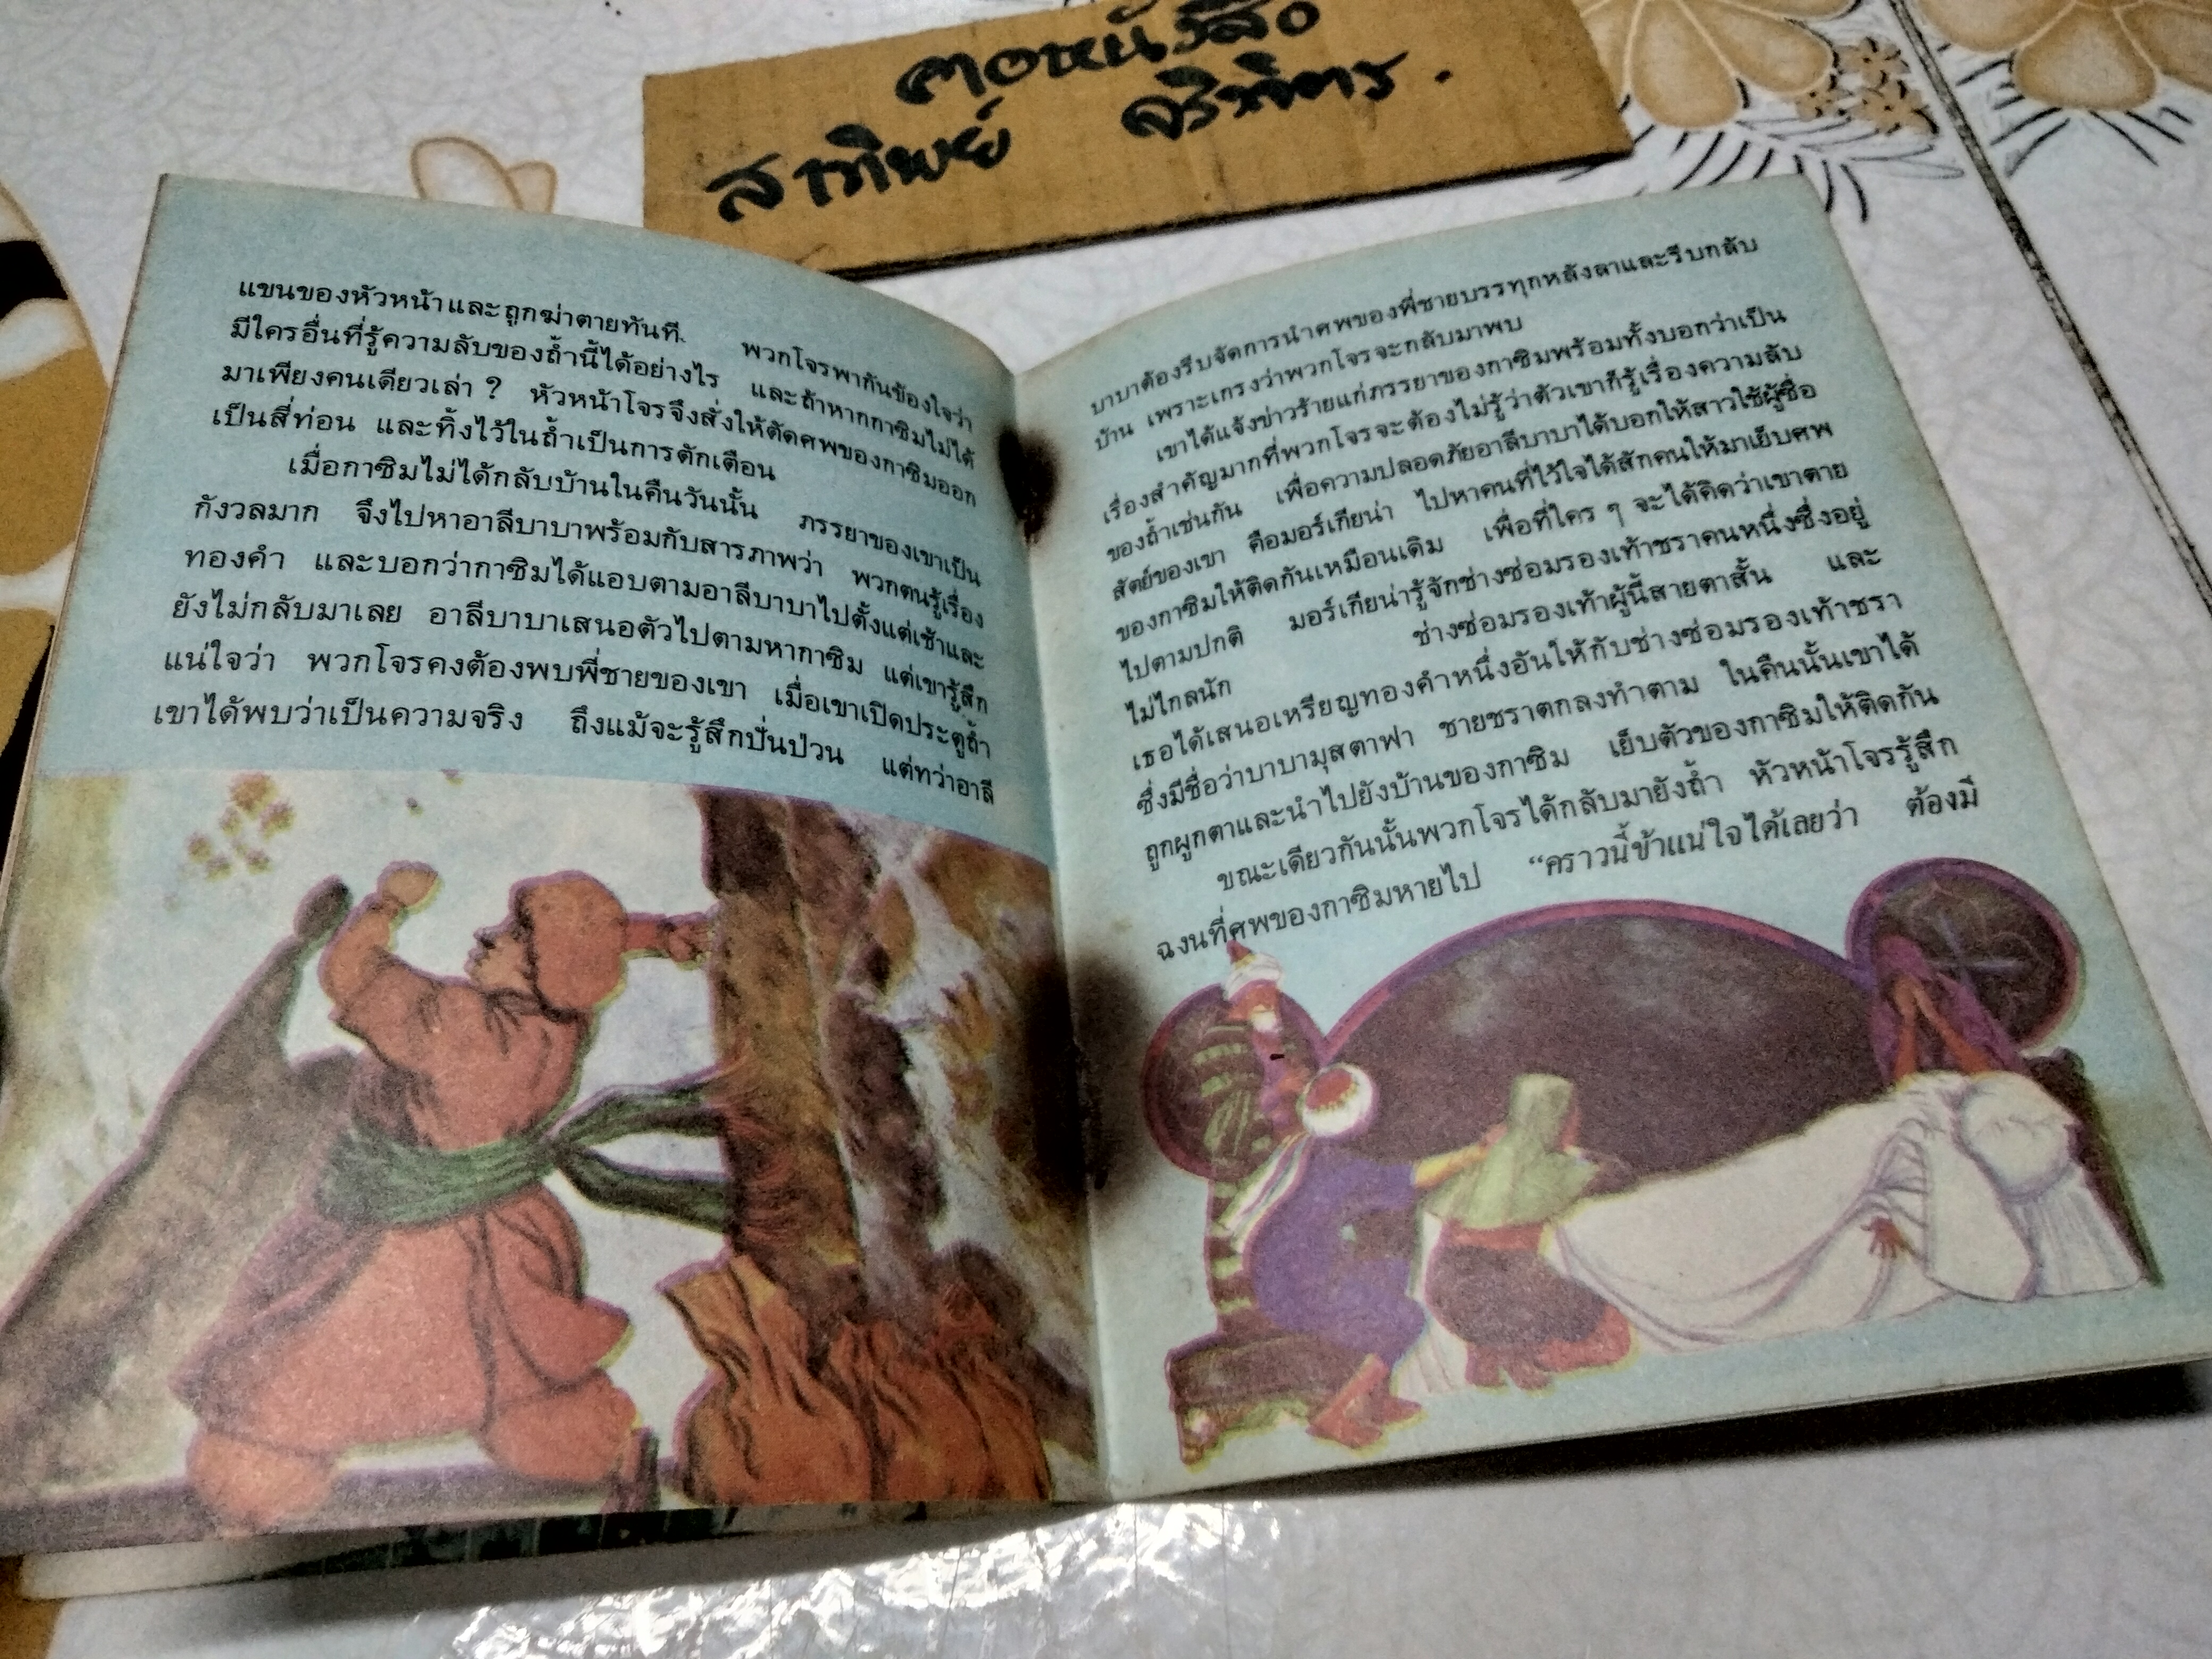 คอหนังสือ
สาทิพย์
แขนของหัวหน้าและถูกฆ่าตายทันที. พวกโจรพากันข้องใจว่า
มีใครอื่นที่รู้ความลับของถ้ำนี้ได้อย่างไร และถ้าหากกาซิมไม่ได้
มาเพียงคนเดียวเล่า ? หัวหน้าโจรจึงสั่งให้ตัดศพของกาซิมออก
เป็นสี่ท่อน และทิ้งไว้ในถ้ำเป็นการตักเตือน
เมื่อกาซิมไม่ได้กลับบ้านในคืนวันนั้น ภรรยาของเขาเป็น
กังวลมาก จึงไปหาอาลีบาบาพร้อมกับสารภาพว่า พวกตนรู้เรื่อง
ทองคำ และบอกว่ากาซิมได้แอบตามอาลีบาบาไปตั้งแต่เช้าและ
ยังไม่กลับมาเลย อาลีบาบาเสนอตัวไปตามหากาซิม แต่เขารู้สึก
แน่ใจว่า พวกโจรคงต้องพบพี่ชายของเขา เมื่อเขาเปิดประตูถ้ำ
เขาได้พบว่าเป็นความจริง ถึงแม้จะรู้สึกปั่นป่วน แต่ทว่าอาลี
บาบาต้องรีบจัดการนำศพของพี่ชายบรรทุกหลังลาและรีบกลับ
บ้าน เพราะเกรงว่าพวกโจรจะกลับมาพบ
เขาได้แจ้งข่าวร้ายแก่ภรรยาของกาซิมพร้อมทั้งบอกว่าเป็น
เรื่องสำคัญมากที่พวกโจรจะต้องไม่รู้ว่าตัวเขาก็รู้เรื่องความลับ
ของถ้ำเช่นกัน เพื่อความปลอดภัยอาลีบาบาได้บอกให้สาวใช้ผู้ซื่อ
สัตย์ของเขา คือมอร์เกียน่า ไปหาคนที่ไว้ใจได้สักคนให้มาเย็บศพ
ของกาซิมให้ติดกันเหมือนเดิม เพื่อที่ใคร ๆ จะได้คิดว่าเขาตาย
ไปตามปกติ มอร์เกียน่ารู้จักช่างซ่อมรองเท้าชราคนหนึ่งซึ่งอยู่
ไม่ไกลนัก ช่างซ่อมรองเท้าผู้นี้สายตาสั้น และ
เธอได้เสนอเหรียญทองคำหนึ่งอันให้กับช่างซ่อมรองเท้าชรา
ซึ่งมีชื่อว่าบาบามุสตาฟา ชายชราตกลงทำตาม ในคืนนั้นเขาได้
ถูกผูกตาและนำไปยังบ้านของกาซิม เย็บตัวของกาซิมให้ติดกัน
ขณะเดียวกันนั้นพวกโจรได้กลับมายังถ้ำ หัวหน้าโจรรู้สึก
ฉงนที่ศพของกาซิมหายไป “คราวนี้ข้าแน่ใจได้เลยว่า ต้องมี